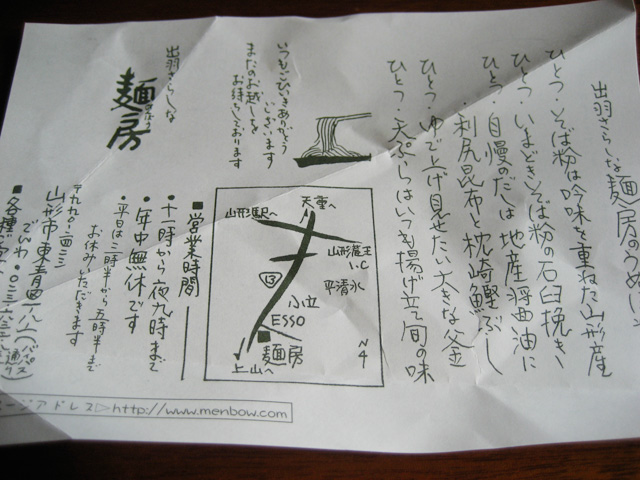 出羽さらしな 麺房のうめい
ひとつ・そば粉は吟味を重ねた山形産
ひとつ・いまどきそば粉の石臼挽き
ひとつ・自慢のだしは地産醤油に
利尻昆布と枕崎鰹ぶし
ひとつ・ゆで上げ見せたい大きな釜
ひとつ・天ぷらはいつも揚げ立て旬の味
いつもごひいきありがとう
ございます
またのお越しを
お待ちしております
出羽さらしな
麺房
天童へ
山形駅へ
山形蔵王
I.C
平清水
13
小立
ESSO
麺房
上山へ
N
4
■営業時間
・十一時から夜九時まで
・年中無休です
平日は三時半から五時半まで
お休みいただきます
〒九九〇-二四三二
山形市東青田
でんわ・〇二三
(バイパス通り)
■各種
ージアドレス▷http://www.menbow.com